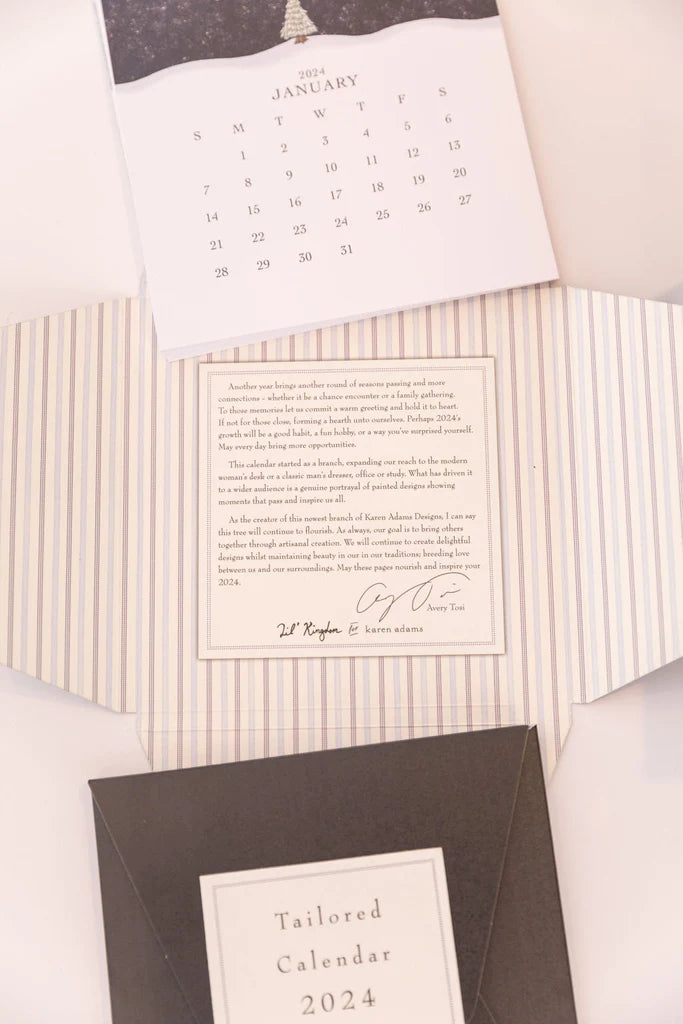 2024
JANUARY
S M T W T F S
1 2 3 4 5 6
7 8 9 10 11 12 13
14 15 16 17 18 19 20
21 22 23 24 25 26 27
28 29 30 31
Another year brings another round of seasons passing and more
connections – whether it be a chance encounter or a family gathering.
To those memories let us commit a warm greeting and hold it to heart.
If not for those close, forming a hearth unto ourselves. Perhaps 2024's
growth will be a good habit, a fun hobby, or a way you've surprised yourself.
May every day bring more opportunities.
This calendar started as a branch, expanding our reach to the modern
woman's desk or a classic man's dresser, office or study. What has driven it
to a wider audience is a genuine portrayal of painted designs showing
moments that pass and inspire us all.
As the creator of this newest branch of Karen Adams Designs, I can say
this tree will continue to flourish. As always, our goal is to bring others
together through artisanal creation. We will continue to create delightful
designs whilst maintaining beauty in our in our traditions; breeding love
between us and our surroundings. May these pages nourish and inspire your
2024.
Avery Tosi
Lil' Kingdom for karen adams
Tailored
Calendar
2024